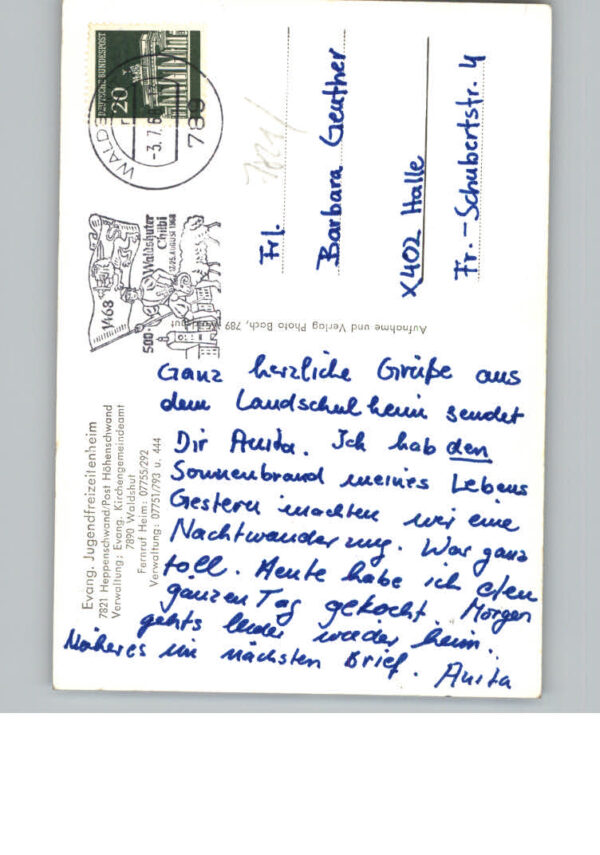 DEUTSCHE BUNDESPOST
20
WALDSHUT
-3.7.6
789
1468
500.
Waldshuter
Chilbi
AUGUST 1968
Frl.
Barbara Geuther
X402 Halle
Fr.-Schubertstr. 4
Aufnahme und Verlag Photo Bach, 789
Evang. Jugendfreizeitenheim
7821 Heppenschwand/Post Höhenschwand
Verwaltung: Evang. Kirchengemeindeamt
7890 Waldshut
Fernruf Heim: 07755/292
Verwaltung: 07751/793 u. 444
Ganz herzliche Grüße aus
dem Landschulheim sendet
Dir Anita. Ich hab den
Sonnenbrand meines Lebens
Gestern machten wir eine
Nachtwanderung. War ganz
toll. Heute habe ich den
ganzen Tag gekocht. Morgen
gehts leider wieder heim.
Näheres im nächsten Brief. Anita